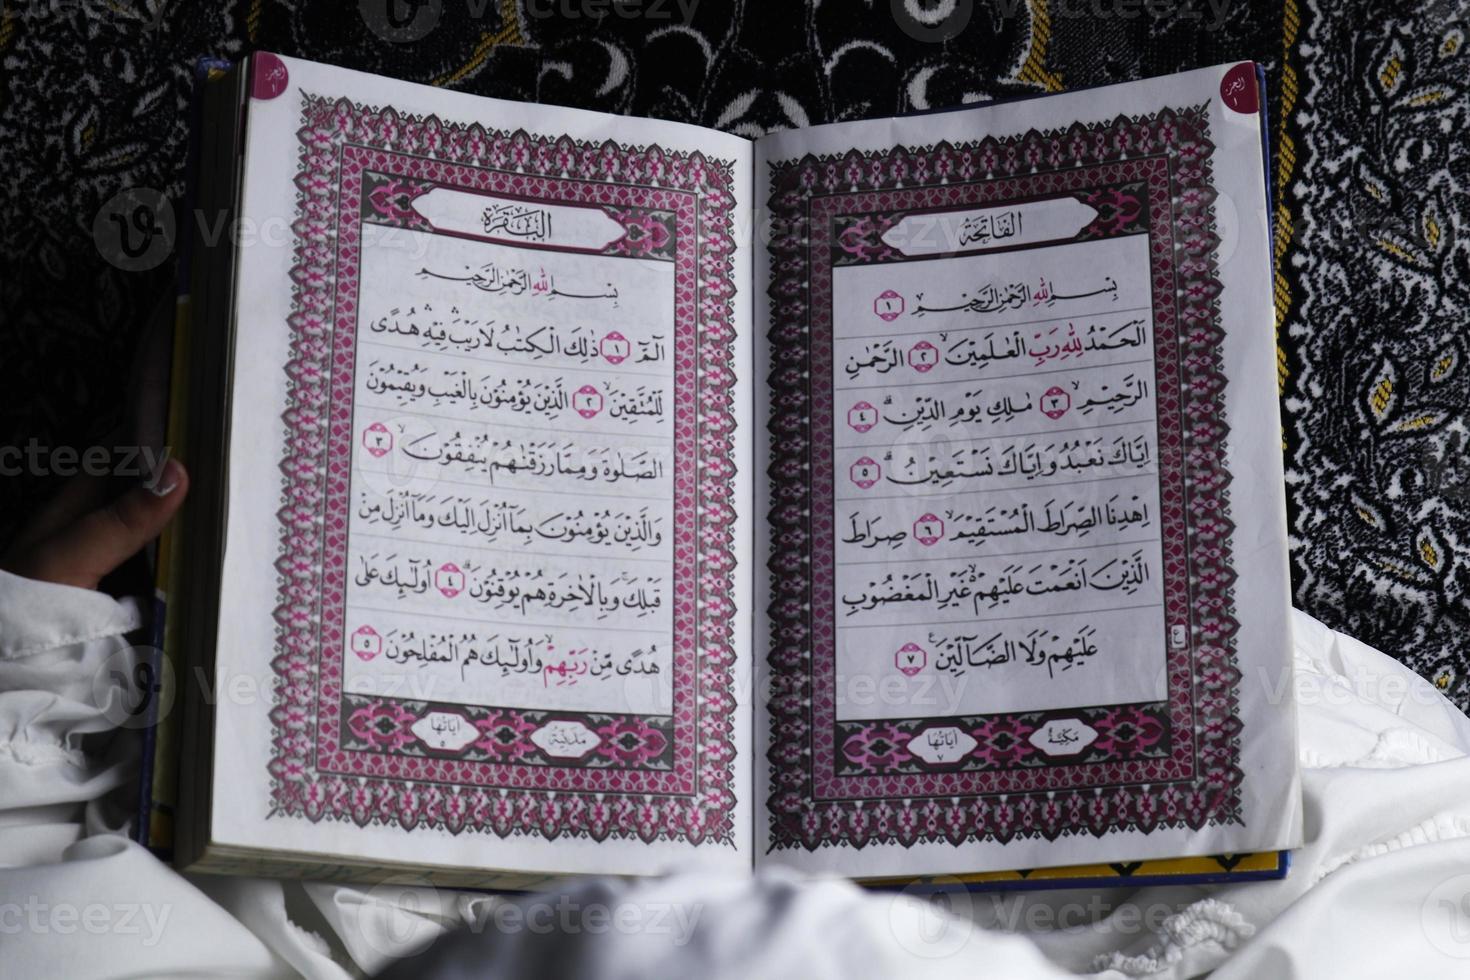 الجزء ١
الفَاتِحَة
بِسْمِ اللهِ الرَّحْمٰنِ الرَّحِيْمِ ١
اَلْحَمْدُ لِلّٰهِ رَبِّ الْعٰلَمِيْنَۙ ٢ الرَّحْمٰنِ
الرَّحِيْمِۙ ٣ مٰلِكِ يَوْمِ الدِّيْنِۗ ٤
اِيَّاكَ نَعْبُدُ وَاِيَّاكَ نَسْتَعِيْنُۗ ٥
اِهْدِنَا الصِّرَاطَ الْمُسْتَقِيْمَۙ ٦ صِرَاطَ
الَّذِيْنَ اَنْعَمْتَ عَلَيْهِمْ ەۙ غَيْرِ الْمَغْضُوْبِ
عَلَيْهِمْ وَلَا الضَّاۤلِّيْنَࣖ ٧
ع
مَكِيَّةٌ
اٰيَاتُهَا ٧
الجزء ١
البَقَرَة
بِسْمِ اللهِ الرَّحْمٰنِ الرَّحِيْمِ
الۤمّۤ ١ ذٰلِكَ الْكِتٰبُ لَا رَيْبَۛ فِيْهِۛ هُدًى
لِّلْمُتَّقِيْنَۙ ٢ الَّذِيْنَ يُؤْمِنُوْنَ بِالْغَيْبِ وَيُقِيْمُوْنَ
الصَّلٰوةَ وَمِمَّا رَزَقْنٰهُمْ يُنْفِقُوْنَۙ ٣
وَالَّذِيْنَ يُؤْمِنُوْنَ بِمَآ اُنْزِلَ اِلَيْكَ وَمَآ اُنْزِلَ مِنْ
قَبْلِكَۚ وَبِالْاٰخِرَةِ هُمْ يُوْقِنُوْنَۗ ٤ اُولٰۤىِٕكَ عَلٰى
هُدًى مِّنْ رَّبِّهِمْۙ وَاُولٰۤىِٕكَ هُمُ الْمُفْلِحُوْنَ ٥
مَدَنِيَّة
اٰيَاتُهَا ٥
Vecteezy